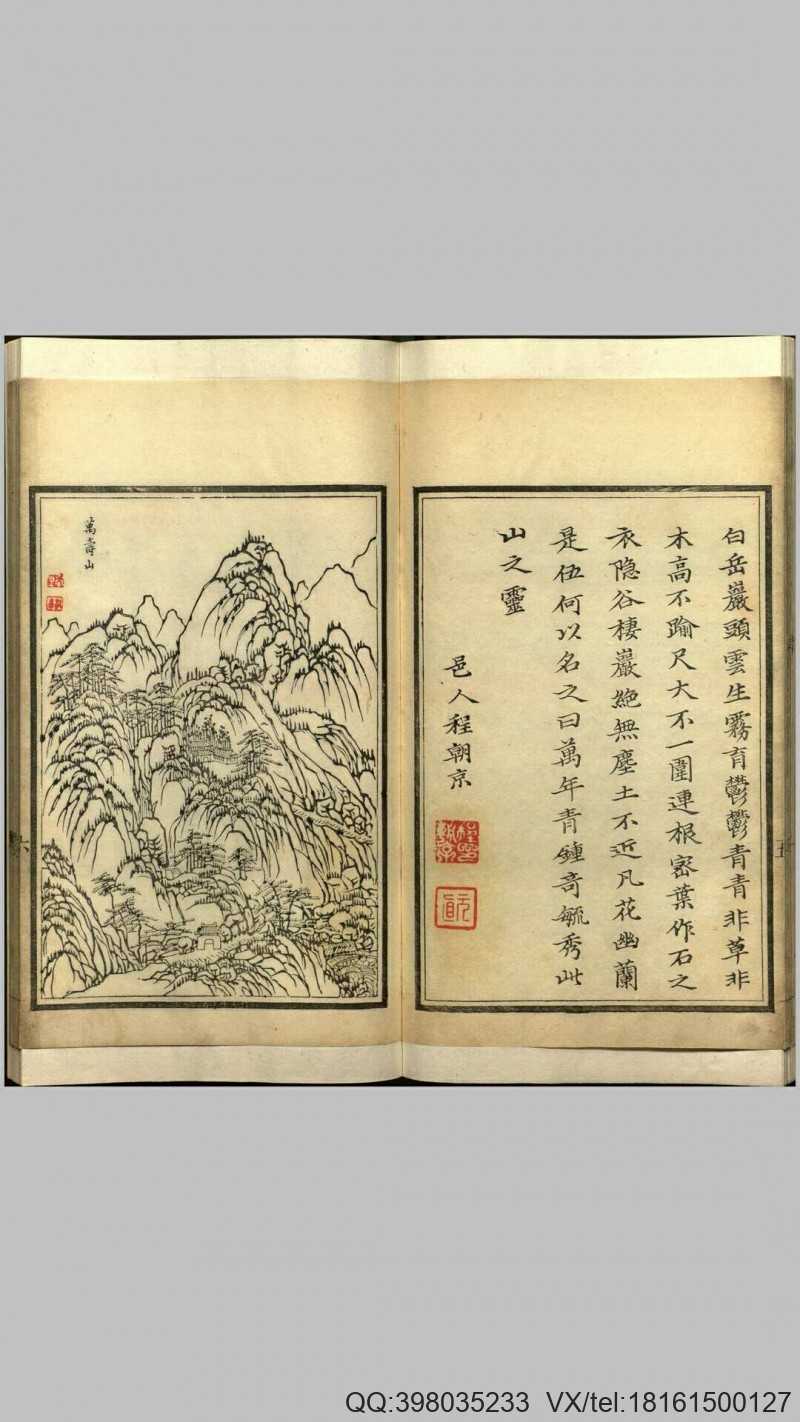 白岳巖頭雲生霧育鬱鬱青青非草非
木高不踰尺大不一圍連根密葉作石之
衣隐谷棲巖絶無塵土不近凡花幽蘭
是伍何以名之曰萬年青鍾奇毓秀此
山之靈
邑人程朝京
萬壽山
QQ:398035233 VX/tel:18161500127